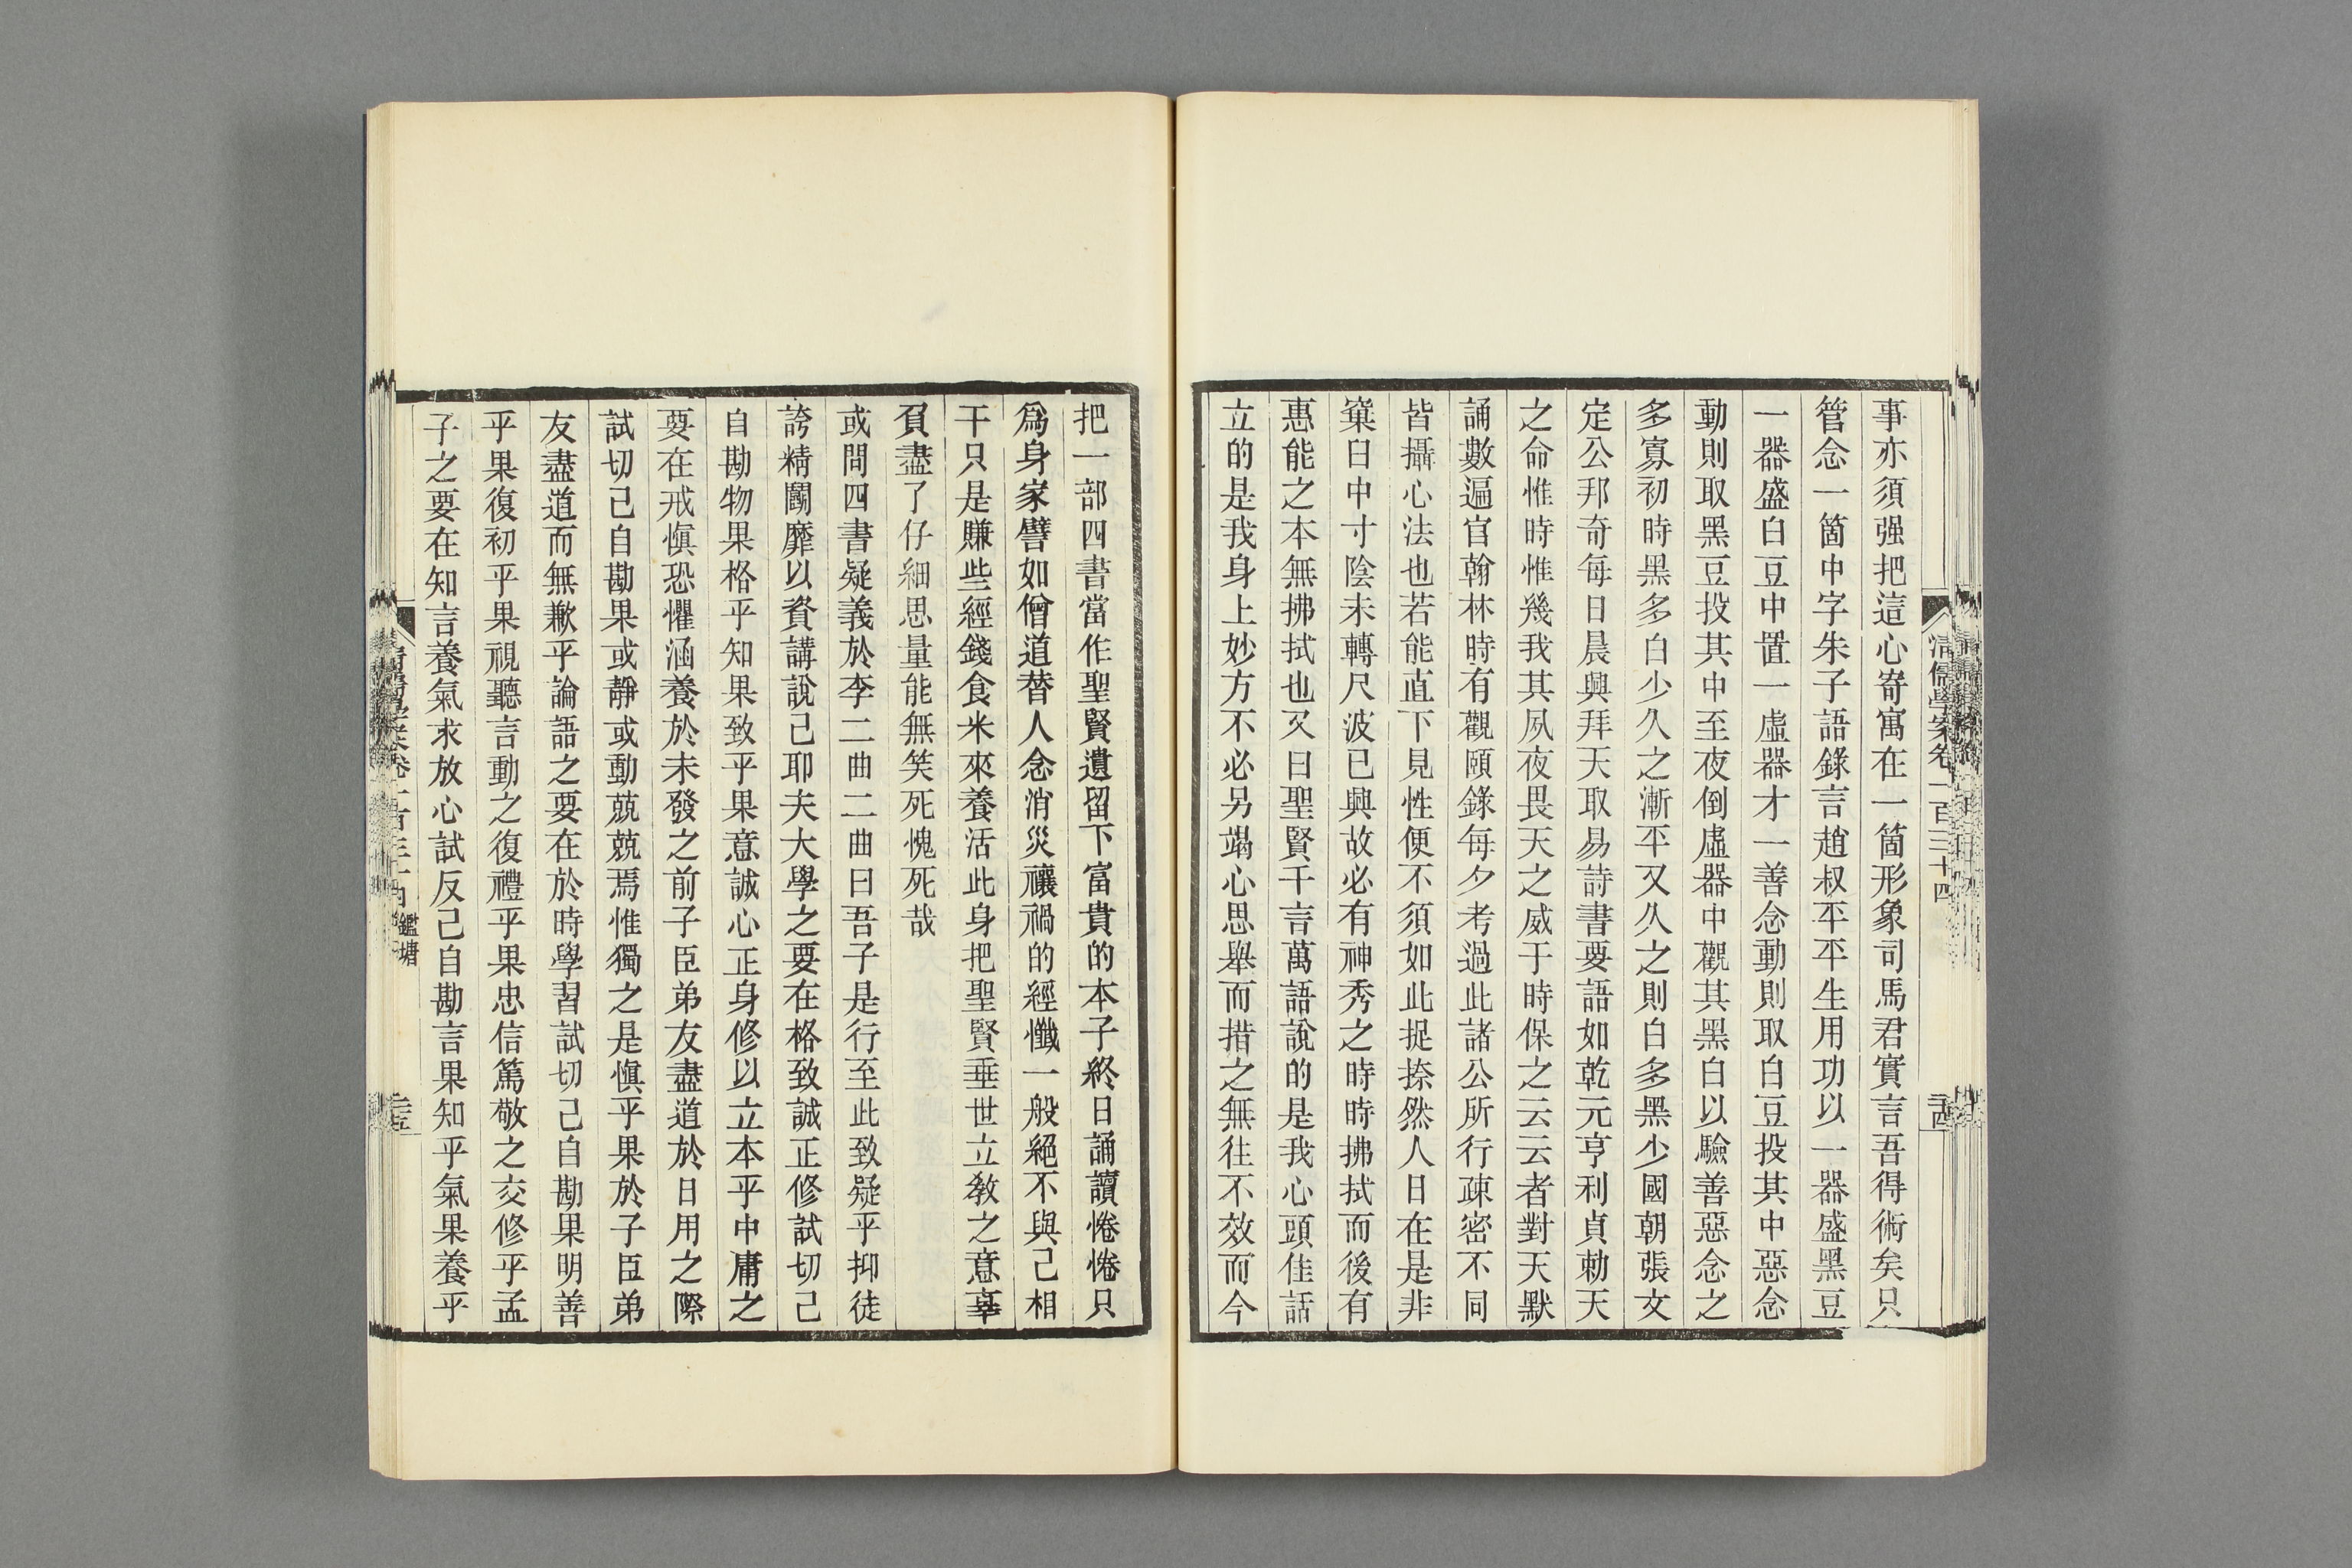 清儒學案卷一百三十四
事亦須强把這心寄寓在一箇形象司馬君實言吾得術矣只
管念一箇中字朱子語錄言趙叔平平生用功以一器盛黑豆
一器盛白豆中置一虛器才一善念動則取白豆投其中惡念
動則取黑豆投其中至夜倒虛器中觀其黑白以驗善惡念之
多寡初時黑多白少久之漸平又久之則白多黑少國朝張文
定公邦奇每日晨興拜天取易詩書要語如乾元亨利貞勅天
之命惟時惟幾我其夙夜畏天之威于時保之云云者對天默
誦數遍官翰林時有觀頤錄每夕考過此諸公所行疎密不同
皆攝心法也若能直下見性便不須如此捉捺然人日在是非
窠臼中寸陰未轉尺波已興故必有神秀之時時拂拭而後有
惠能之本無拂拭也又曰聖賢千言萬語說的是我心頭佳話
立的是我身上妙方不必另竭心思舉而措之無往不效而今
把一部四書當作聖賢遺留下富貴的本子終日誦讀惓惓只
爲身家譬如僧道替人念消災禳禍的經懺一般絕不與己相
干只是賺些經錢食米來養活此身把聖賢垂世立敎之意辜
負盡了仔細思量能無笑死愧死哉
或問四書疑義於李二曲二曲曰吾子是行至此致疑乎抑徒
誇精鬭靡以資講說己耶夫大學之要在格致誠正修試切己
自勘物果格乎知果致乎果意誠心正身修以立本乎中庸之
要在戒愼恐懼涵養於未發之前子臣弟友盡道於日用之際
試切己自勘果或靜或動兢兢焉惟獨之是愼乎果於子臣弟
友盡道而無歉乎論語之要在於時學習試切己自勘果明善
乎果復初乎果視聽言動之復禮乎果忠信篤敬之交修乎孟
子之要在知言養氣求放心試反己自勘言果知乎氣果養乎
鑑塘